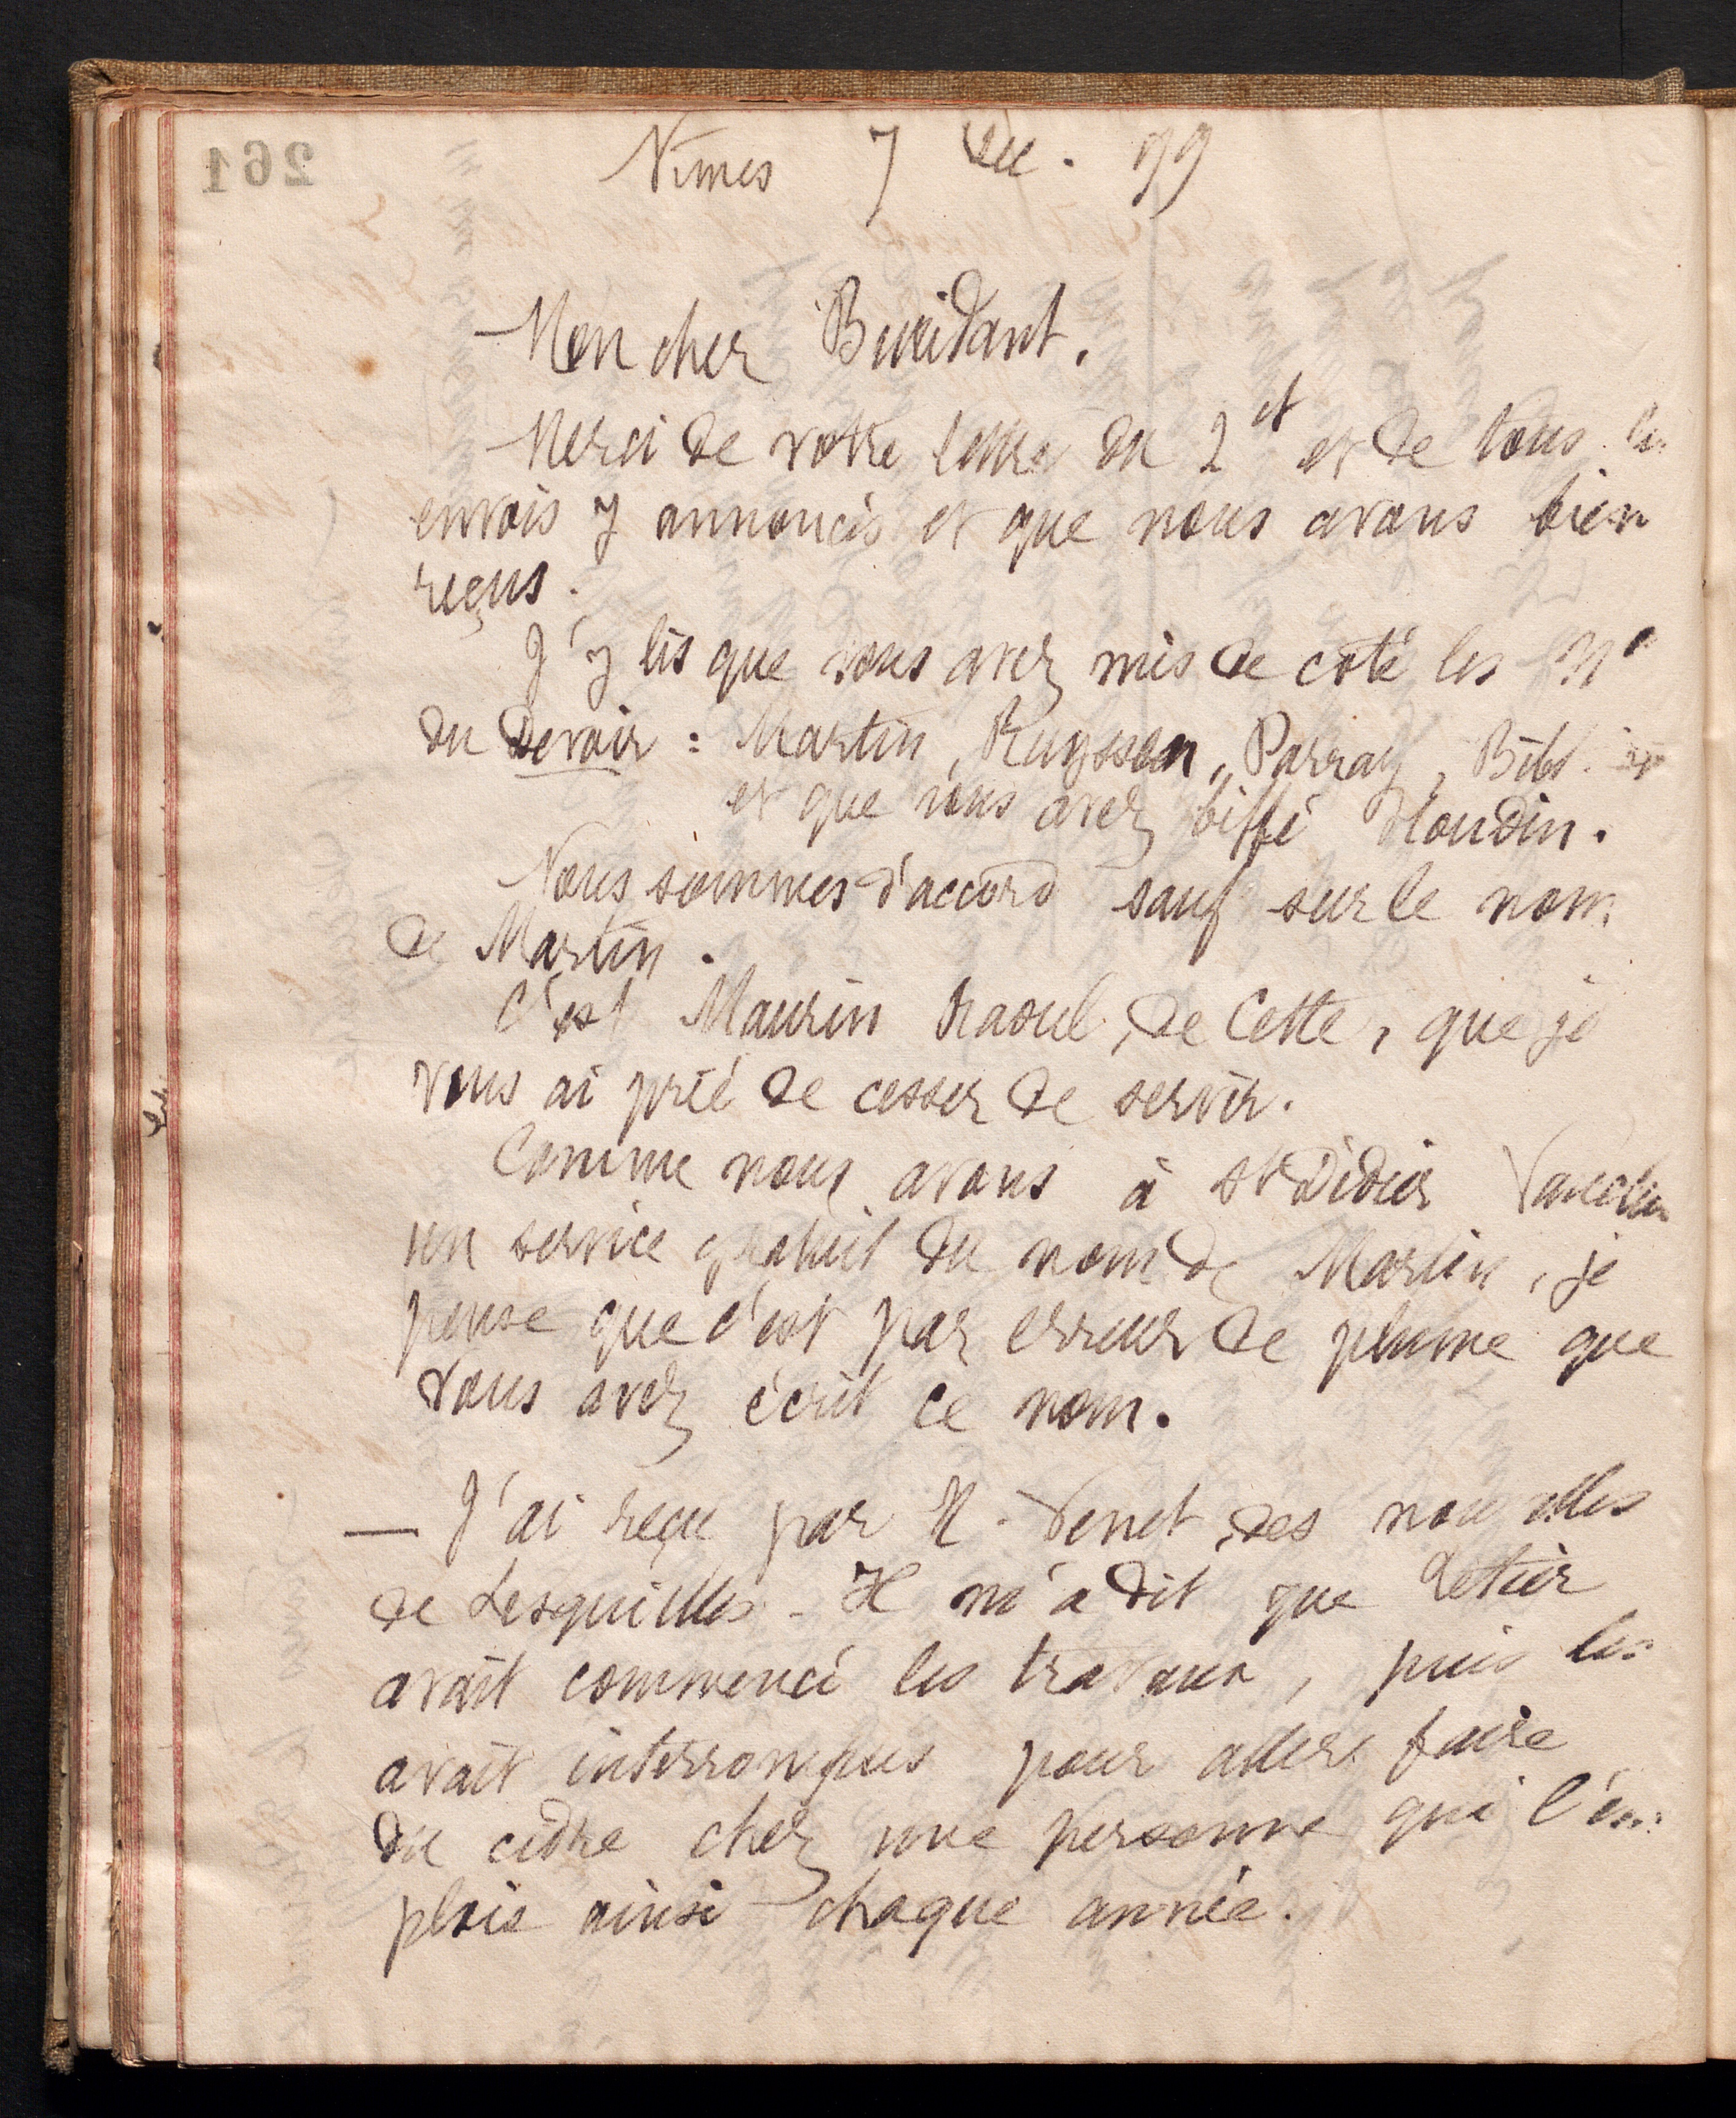 261
Nîmes 7 Déc. 99
Mon cher Buridant.
Merci de votre lettre du 2 ct et de tous les
envois y annoncés et que nous avons bien
reçus.
J'y lis que vous avez mis de côté les Nos
du Devoir : Martin, Ruyssen, Parray, Bibl.
et que vous avez biffé Houdin.
Nous sommes d'accord sauf sur le nom
de Martin.
C'est Maurin Raoul, de Cette, que je
vous ai prié de cesser de servir.
Comme nous avons à St Didier Vaucluse
un service gratuit du nom de Martin, je
pense que c'est par erreur de plume que
vous avez écrit ce nom.
— J'ai reçu par H. Venet, des nouvelles
de Lesquilles - Il m'a dit que Letier
avait commencé les travaux, puis les
avait interrompus pour aller faire
du cidre chez une personne qui l'em
ploie ainsi chaque année.